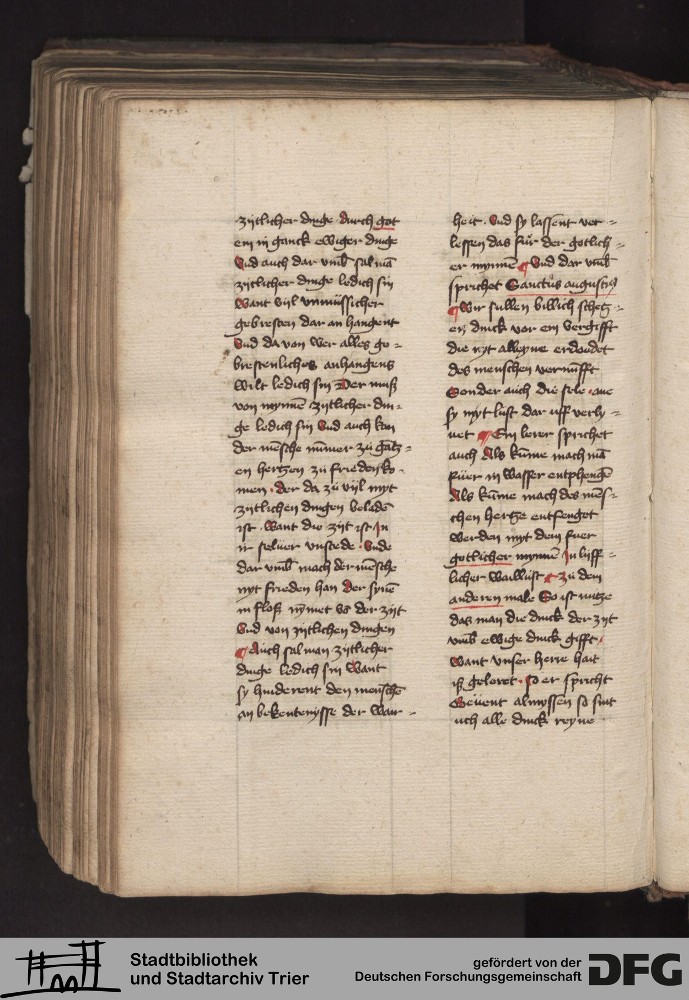 zijtlicher dinge durch got
ein in ganck ewiger dinge
Vnd auch dar vmb sal mā
zijtlicher dinge ledich sin
Want vijl vnmüssicher
gebresten dar an hangent
Vnd da von wer alles ge-
brestenliches anhangens
wilt ledich sin Der muß
von mynnē zijtlicher din-
ge ledich sin Vnd auch kan
der mēsche nūmer zü gātz-
en hertzen zü frieden ko-
men. der da zü vijl myt
zijtlichen dingen beladē
ist. Want die zijt ist in
ir seluer vnstede. Vnde
dar vmb mach der mēsche
nyt frieden han der synē
in floß nymet vß der zijt
Vnd von zijtlichen dingen
Auch sal man zijtlicher
dinge ledich sin Want
sy hinderent den menschē
an bekentenysse der war-
heit. Vnd sy lassent ver-
lessen das für der gotlich-
er mynnē Vnd dar vmb
sprichet Sanctus augustiꝰ
Wir sullen billich schetz-
en dinck vor ein vergifft
die nyt alleyne erdoedet
des menschen vernūfft
Sonder auch die sele. ane
sy myt lust dar uff verly-
uet Ein lerer sprichet
auch Als kūme mach mā
füer in wasser entphengē
Als kūme mach des mēs-
chen hertze entfenget
werden myt dem fuer
gotlicher mynnē In lijff-
licher wollust zü dem
anderen male So ist nütze
das man die dinck der zijt
vmb ewige dinck gifft.
want vnser herre hait
iß geleret. so er spricht
Geuent almyssen so sint
uch alle dinck reyne
Stadtbibliothek
und Stadtarchiv Trier
gefördert von der
Deutschen Forschungsgemeinschaft
DFG